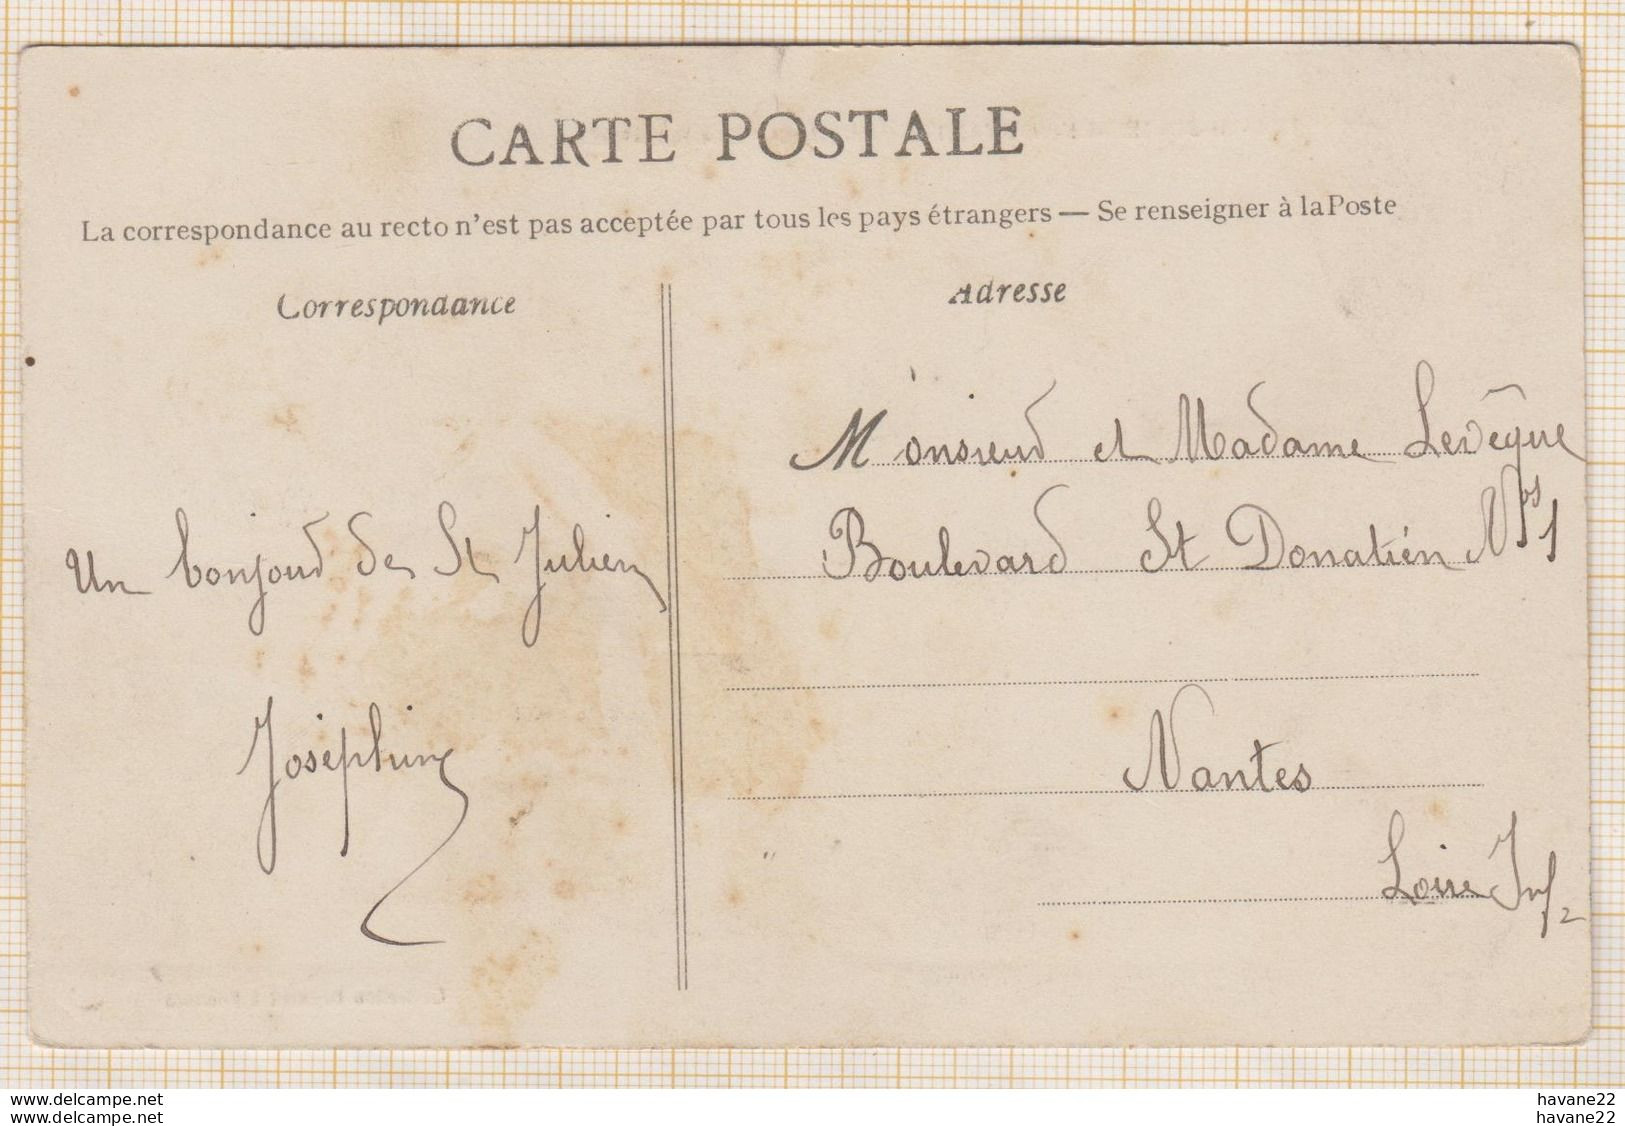 CARTE POSTALE
La correspondance au recto n'est pas acceptée par tous les pays étrangers — Se renseigner à la Poste
Correspondance
Adresse
Monsieur et Madame Levêque
Boulevard St Donatién Nos 1
Un bonjour de St Julien
Joséphine
Nantes
Loire Inf
www.delcampe.net
www.delcampe.net
havane22
havane22